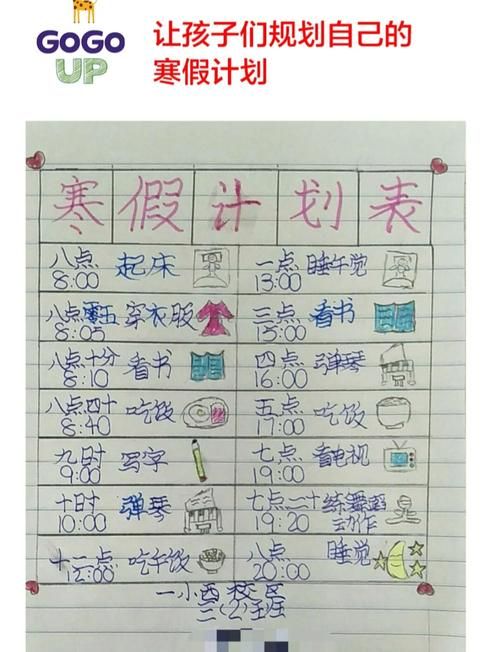 GOGO
UP
让孩子们规划自己的
寒假计划
寒假计划表
八点 起床
8:00
一点 睡午觉
13:00
八点零五 穿衣服
8:05
三点 看书
15:00
八点十分 看书
8:10
四点 弹琴
16:00
八点四十 吃饭
8:40
五点 吃饭
17:00
九时 写字
9:00
七点 看电视
19:00
十时 弹琴
10:00
七点二十 练舞蹈
19:20 动作
十二点 吃午饭
12:00
八点 睡觉
20:00
一小西校区
三(2)班